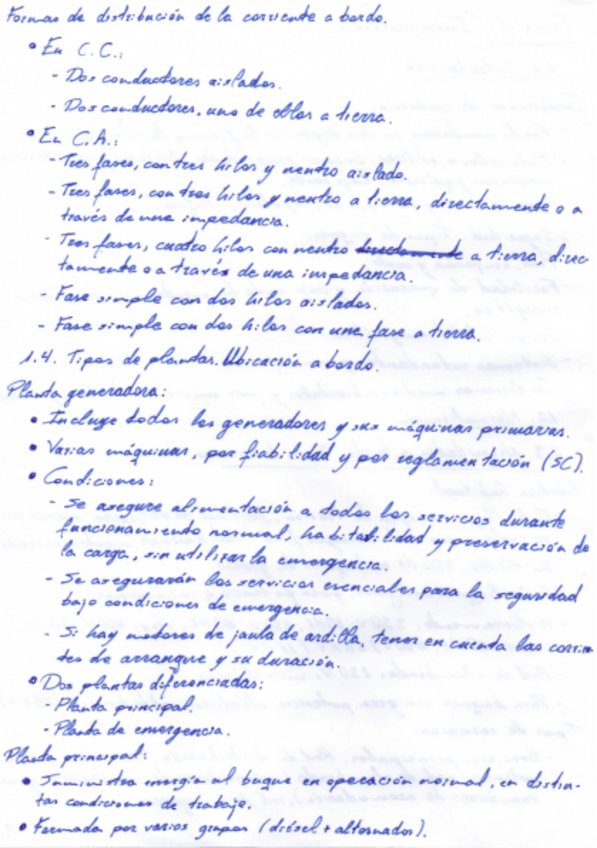 Formas de distribución de la corriente a bordo.
• En C.C.:
- Dos conductores aislados.
- Dos conductores, uno de ellos a tierra.
• En C.A.:
- Tres fases, con tres hilos y neutro aislado.
- Tres fases, con tres hilos y neutro a tierra, directamente o a
través de una impedancia.
- Tres fases, cuatro hilos con neutro directamente a tierra, direc
tamente o a través de una impedancia.
- Fase simple con dos hilos aislados.
- Fase simple con dos hilos con una fase a tierra.
1.4. Tipos de plantas. Ubicación a bordo.
Planta generadora:
• Incluye todos los generadores y sus máquinas primarias.
• Varias máquinas, por fiabilidad y por reglamentación (SC).
• Condiciones:
- Se asegure alimentación a todos los servicios durante
funcionamiento normal, habitabilidad y preservación de
la carga, sin utilizar la emergencia.
- Se asegurarán los servicios esenciales para la seguridad
bajo condiciones de emergencia.
- Si hay motores de jaula de ardilla, tener en cuenta las corrien
tes de arranque y su duración.
• Dos plantas diferenciadas:
- Planta principal.
- Planta de emergencia.
Planta principal:
• Suministra energía al buque en operación normal, en distin-
tas condiciones de trabajo.
• Formada por varios grupos (diésel + alternador).